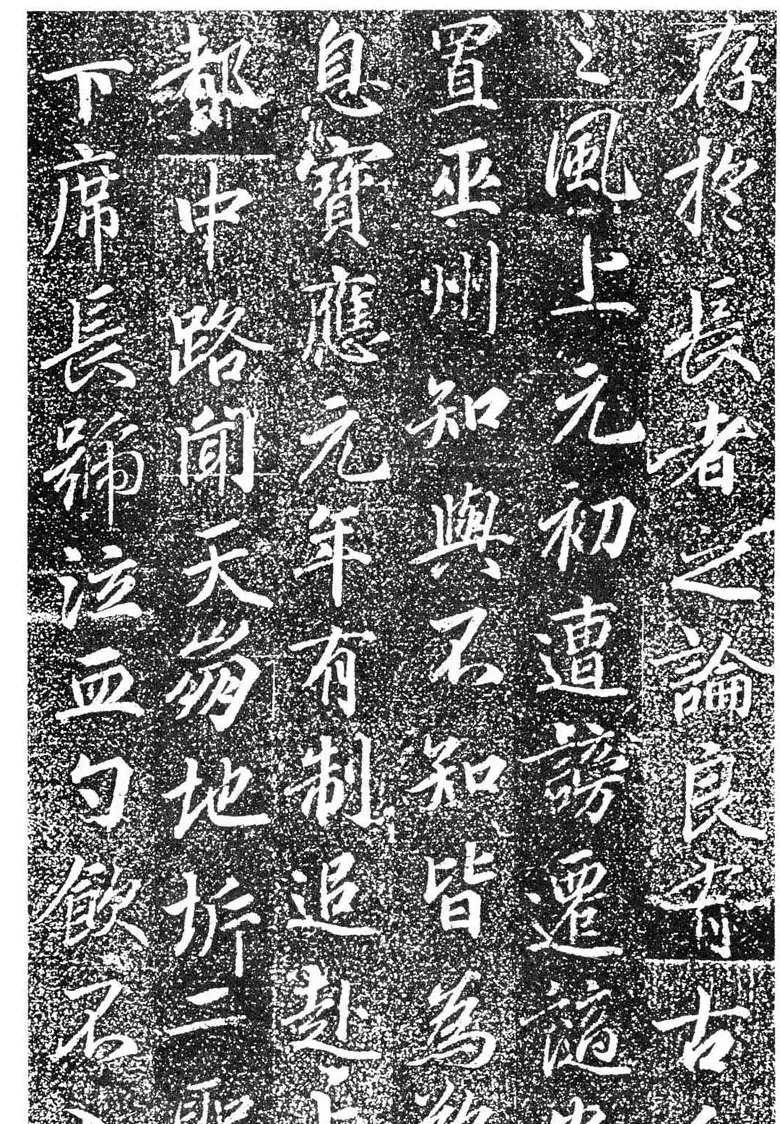 存於長者之論良有古
之風上元初遭謗遷謫
置巫州知與不知皆為
息寶應元年有制追赴上
都中路聞天崩地坼二聖
下席長號泣血勺飲不